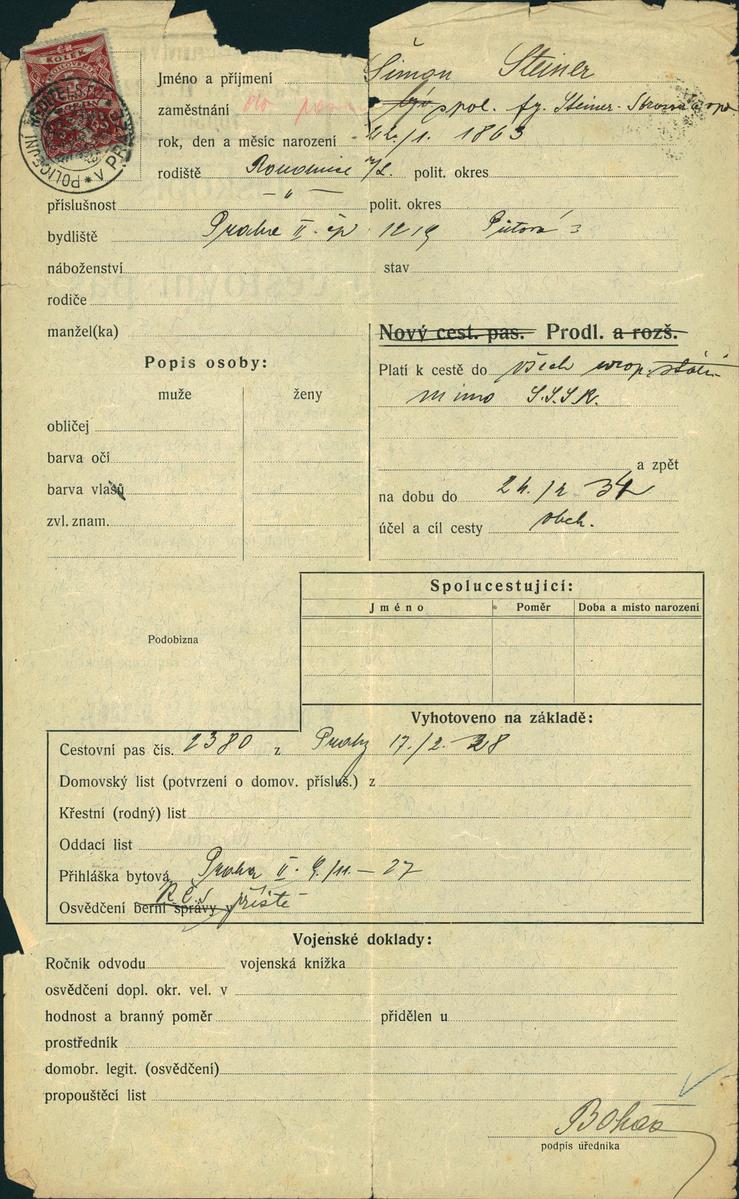 Jméno a příjmení Šimon Steiner
zaměstnání do pasu spol. fy. Steiner-Strauss a spol
rok, den a měsíc narození 22./1. 1863
rodiště Roudnice n/L. polit. okres
příslušnost — " — polit. okres
bydliště Praha II. čp. 1219 Půtova 3
náboženství stav
rodiče
manžel(ka)
Nový cest. pas. Prodl. a rozš.
Popis osoby:
muže ženy
Platí k cestě do všech evrop. států
mimo S.S.S.R.
obličej
barva očí
barva vlasů
zvl. znam.
a zpět
na dobu do 24./2. 34
účel a cíl cesty obch.
Spolucestující:
Jméno Poměr Doba a místo narození
Podobizna
Vyhotoveno na základě:
Cestovní pas čís. 2380 z Prahy 17./2. 28
Domovský list (potvrzení o domov. přísluš.) z
Křestní (rodný) list
Oddací list
Přihláška bytová Praha II. 9/11 – 27
Osvědčení berní správy v R.Č.S. příště
Vojenské doklady:
Ročník odvodu vojenská knížka
osvědčení dopl. okr. vel. v
hodnost a branný poměr přidělen u
prostředník
domobr. legit. (osvědčení)
propouštěcí list
podpis úředníka